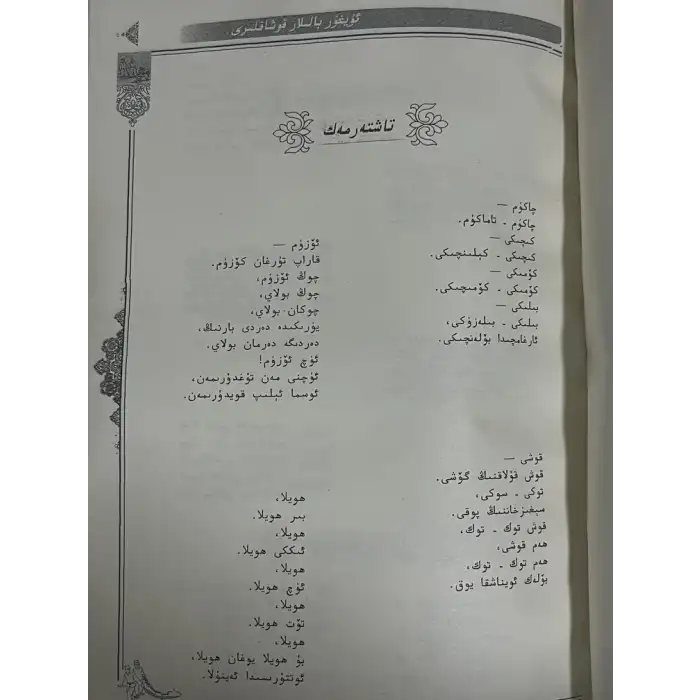 ئۇيغۇر بالىلار قوشاقلىرى
تاشتەرمەك
چاكۇم —
چاكۇم ـ تاماكۇم.
كىچىكى —
كىچىكى ـ كېلىنچىكى.
كۆمىكى —
كۆمىكى ـ كۆمىچىكى.
بىلىكى —
بىلىكى ـ بىلەزۈكى،
ئارغامچىدا بۆلەنچىكى.
ئۆزۈم —
قاراپ تۇرغان كۆزۈم.
چوڭ ئۆزۈم،
چوڭ بولاي،
چوكان بولاي،
يۈرىكىدە دەردى بارنىڭ،
دەردىگە دەرمان بولاي.
ئۈچ ئۆزۈم!
ئۈچنى مەن تۇغدۇرىمەن،
ئوسما ئېلىپ قويدۇرىمەن.
قوشى —
قوش قۇلاقنىڭ گۆشى.
توكى ـ سوكى،
سېغىزخاننىڭ پوقى.
قوش توك ـ توك،
ھەم قوشى،
ھەم توك ـ توك،
بۆلەك ئويناشقا يوق.
ھويلا،
بىر ھويلا.
ھويلا،
ئىككى ھويلا.
ھويلا،
ئۈچ ھويلا.
ھويلا،
تۆت ھويلا.
ھويلا،
بۇ ھويلا يوغان ھويلا،
ئوتتۇرىسىدا ئەينۇلا.